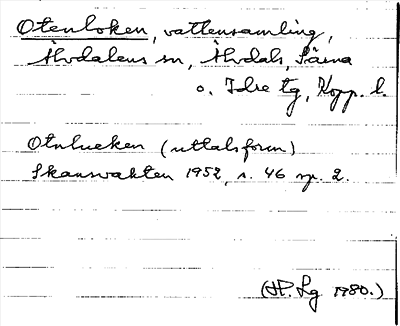 Otenloken, vattensamling,
Älvdalens sn, Älvdals, Särna
o. Idre tg, Kopp. l.
Otnlueken (uttalsform)
Skansvakten 1952, s. 46 sp. 2.
(H. Lg 1980.)